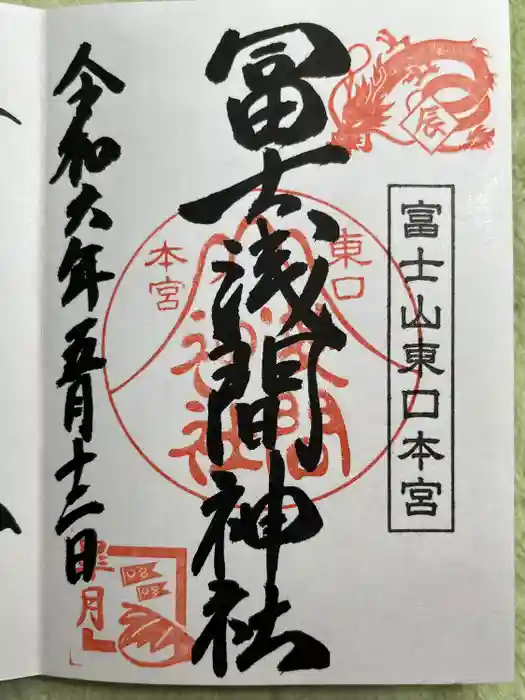 辰
富士山東口本宮
冨士浅間神社
東口
本宮
令和六年五月十二日
皐月